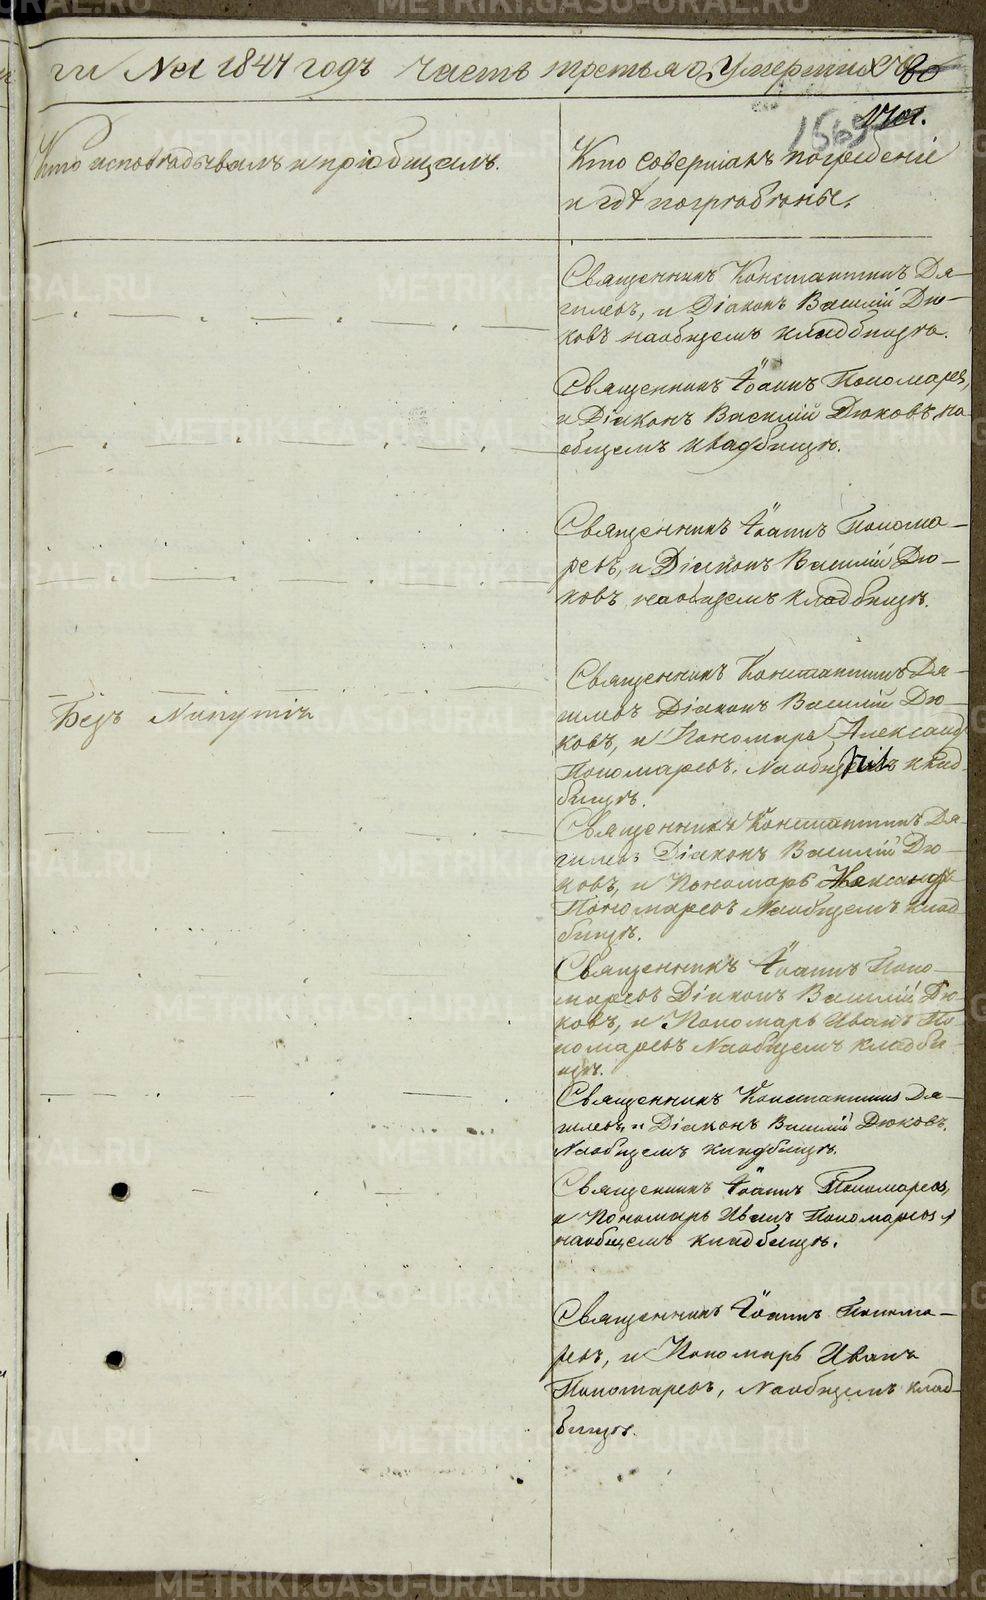 ги На 1847 годъ Часть третья о Умершихъ
Кто исповѣдывалъ и пріобщалъ.
Кто совершалъ погребеніе
и гдѣ погребены.
Священникъ Константинъ Дя-
гилевъ, и Діаконъ Василій Дю-
ковъ наобщемъ кладбищѣ.
Священникъ Іоаннъ Пономаревъ,
и Діаконъ Василій Дюковъ, на
общемъ кладбищѣ.
Священникъ Іоаннъ Понома-
ревъ, и Діаконъ Василій Дю-
ковъ наобщемъ кладбищѣ.
Безъ Напутія
Священникъ Константинъ Дя-
гилевъ Діаконъ Василій Дю-
ковъ, и Пономарь Александръ
Пономаревъ, Наобщемъ клад-
бищѣ.
Священникъ Константинъ Дя-
гилевъ Діаконъ Василій Дю-
ковъ, и Пономарь Александръ
Пономаревъ Наобщемъ клад-
бищѣ.
Священникъ Іоаннъ Поно-
маревъ Діаконъ Василій Дю-
ковъ, и Пономарь Иванъ По-
номаревъ Наобщемъ кладби-
щѣ.
Священникъ Константинъ Дя-
гилевъ, и Діаконъ Василій Дюковъ,
Наобщемъ кладбищѣ.
Священникъ Іоаннъ Пономаревъ,
и Пономарь Иванъ Пономаревъ,
наобщемъ кладбищѣ.
Священникъ Іоаннъ Понома-
ревъ, и Пономарь Иванъ
Пономаревъ, Наобщемъ клад-
бищѣ.
METRIKI.GASO-URAL.RU